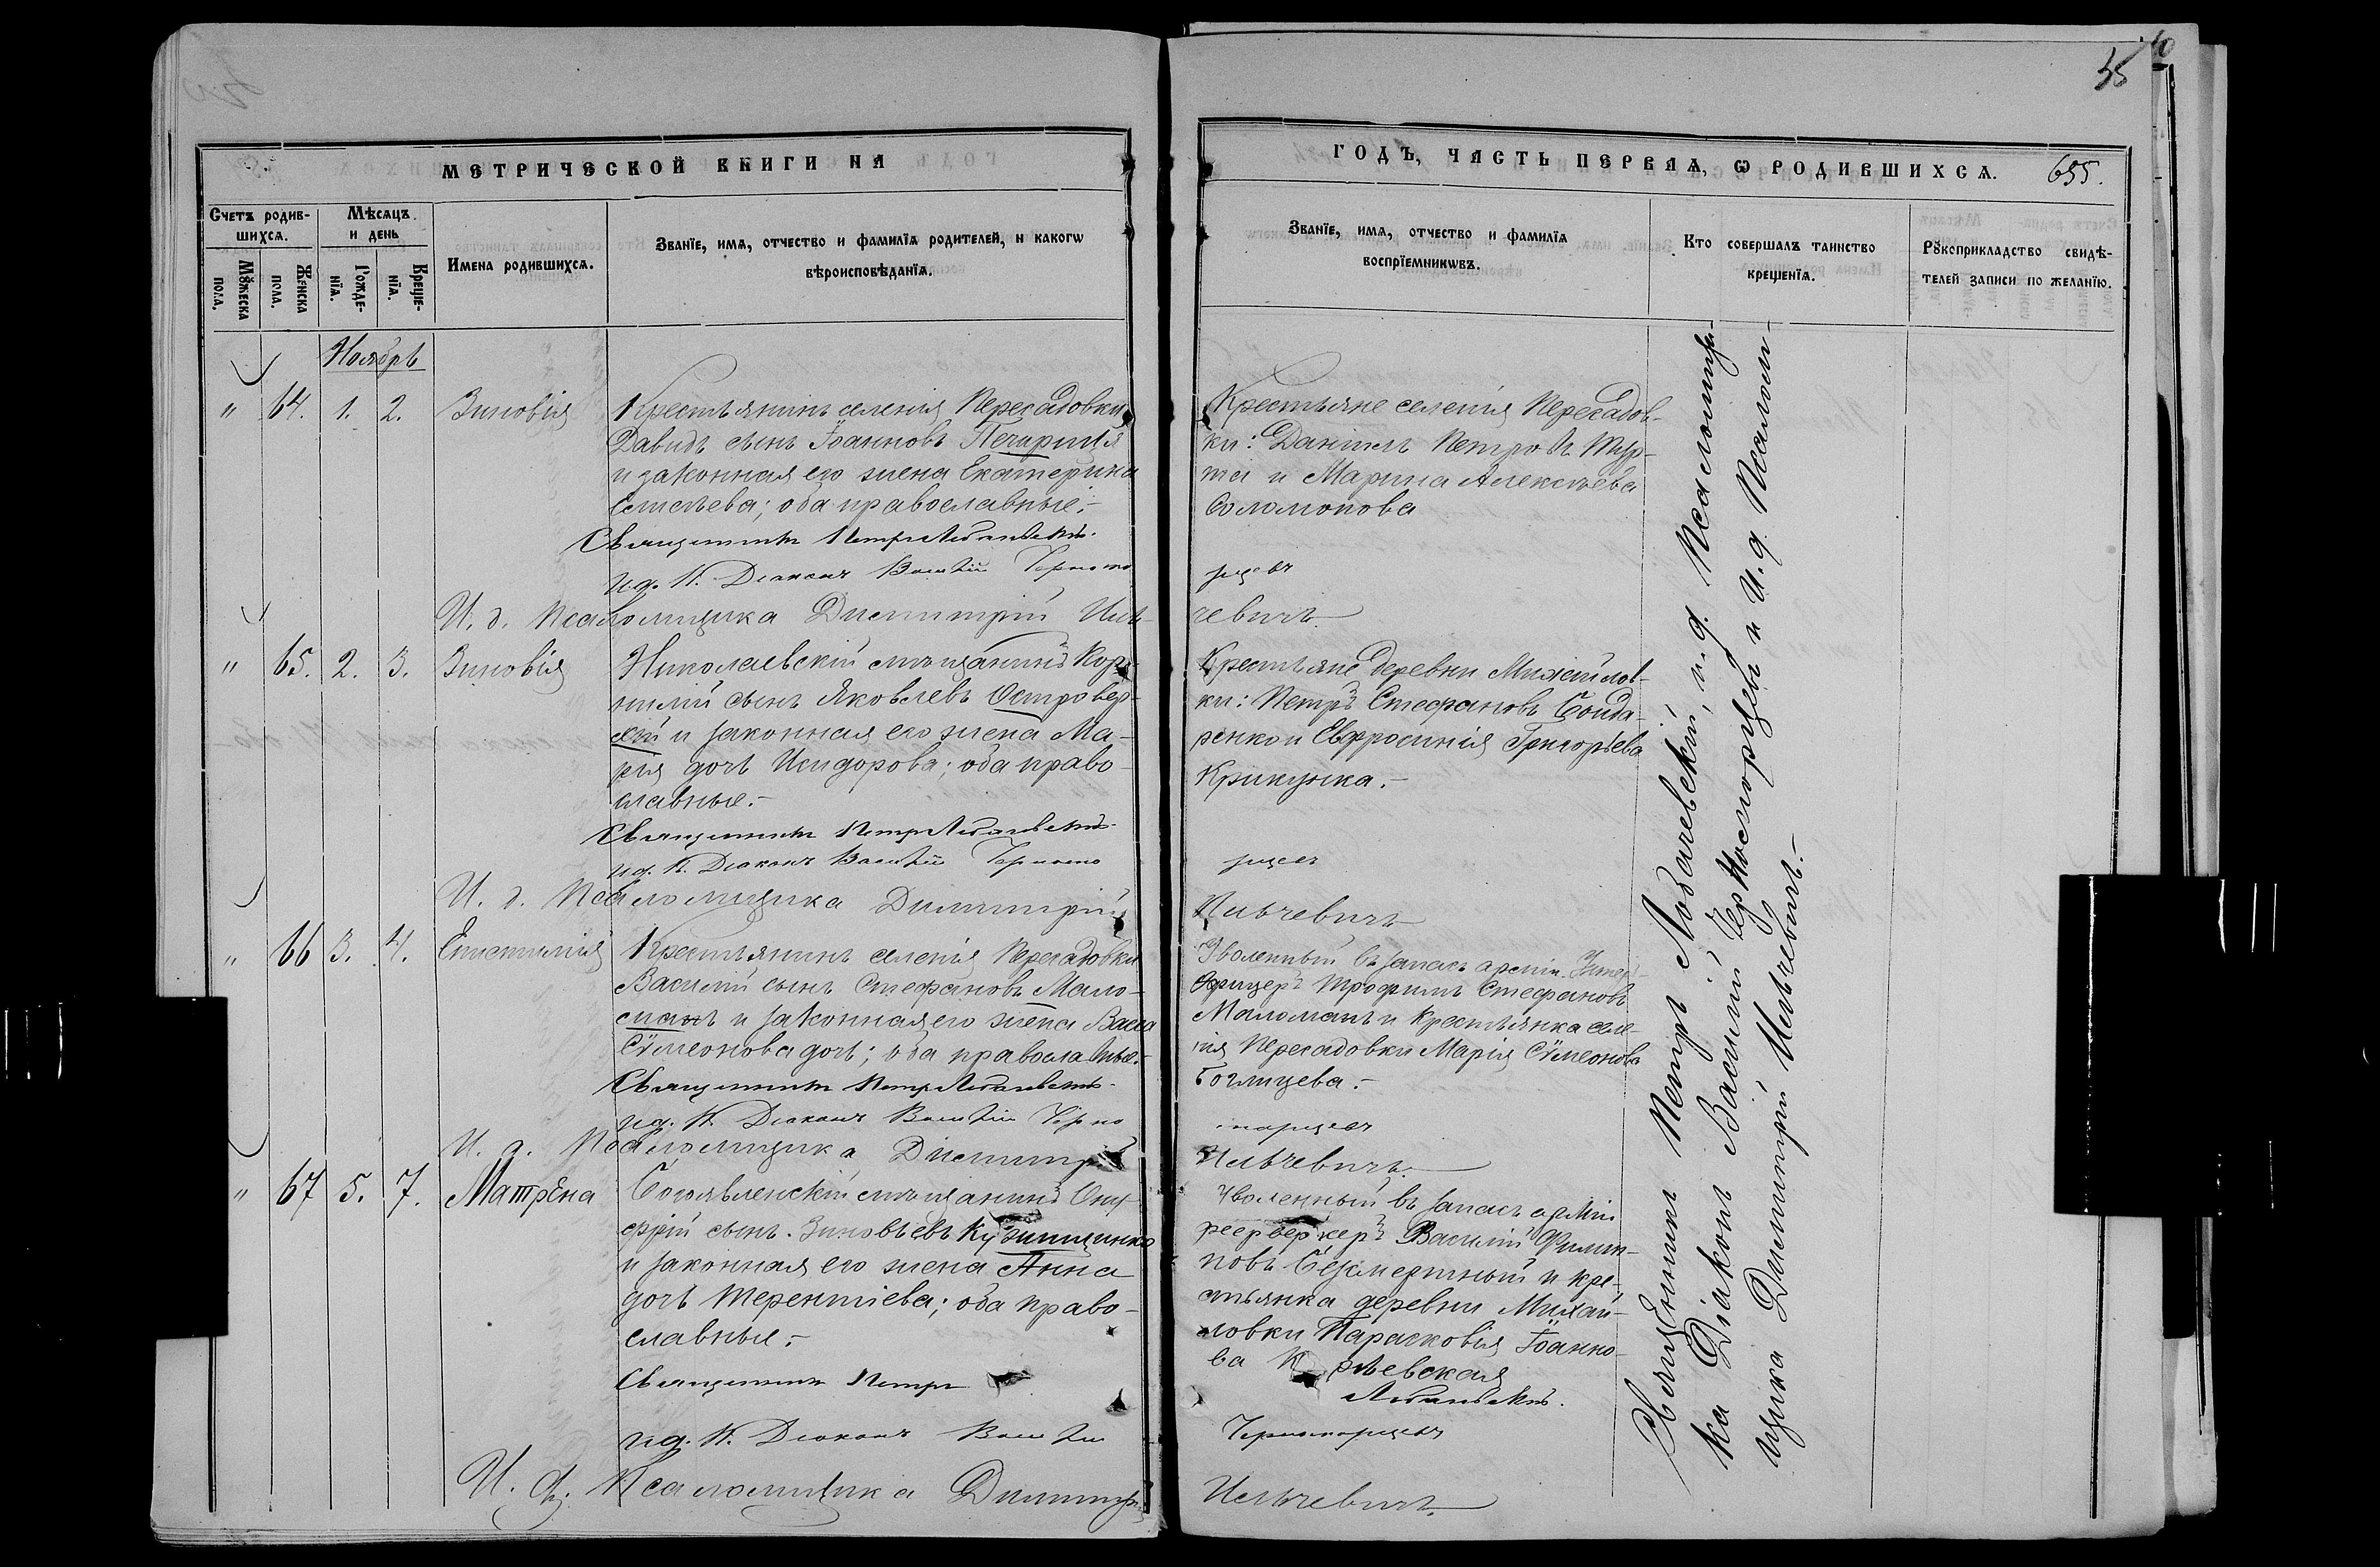 35
МЕТРИЧЕСКОЙ КНИГИ НА
ГОДЪ, ЧАСТЬ ПЕРВАЯ, Ѡ РОДИВШИХСѦ. 655.
Счетъ родив-
шихсѧ.
Мѣсѧцъ
и день
Мꙋжеска
пола.
Женска
пола.
Рожде-
нїѧ.
Креще-
нїѧ.
Имена родившихсѧ.
Званїе, имѧ, отчество и фамилїѧ родителей, и какогѡ
вѣроисповѣданїѧ.
Званїе, имѧ, отчество и фамилїѧ
воспрїемникѡвъ.
Кто совершалъ таинство
крещенїѧ.
Рꙋкоприкладство свидѣ-
телей записи по желанїю.
Ноябрь
" 64. 1. 2. Зиновія
Крестьянинъ селенія Пересадовки
Давидъ сынъ Іоанновъ
и законная его жена Екатерина
оба православные.-
Священникъ Петръ Лобачевскій.
и.д. П. Діаконъ Василій Черномо
рцевъ
И. д. Псаломщика Димитрій Иль-
чевичъ.
Крестьяне селенія Пересадов-
ки: Даніилъ Петровъ
и Марина Алексѣева
Соломонова
" 65. 2. 3. Зиновія
Николаевскій мѣщанинъ Кор-
нилій сынъ Яковлевъ Островер-
хій и законная его жена Ма-
рія дочь Исидорова; оба право-
славные.-
Священникъ Петръ Лобачевскій.
и.д. П. Діаконъ Василій Черномо
рцевъ
И. д. Псаломщика Димитрій
Ильчевичъ
Крестьяне деревни Михайлов-
ки: Петръ Стефановъ Бонда-
ренко и Евфросинія Григорьева
Крикунка.-
" 66 3. 4. Епистимія
Крестьянинъ селенія Пересадовки
Василій сынъ Стефановъ Мало-
манъ и законная его жена Васса
Сѵмеонова дочь; оба православные.-
Священникъ Петръ Лобачевскій.
и.д. П. Діаконъ Василій Черно
морцевъ
И. д. Псаломщика Димитрій
Ильчевичъ.
Уволенный въ запасъ арміи Унтеръ-
Офицеръ Трофимъ Стефановъ
Маломанъ и крестьянка селе-
нія Пересадовки Марія Сѵмеонова
" 67 5. 7. Матрена
Богоявленскій мѣщанинъ Они-
сифій сынъ Зиновьевъ
и законная его жена Анна
дочь Терентіева; оба право-
славные.-
Священникъ Петръ
Лобачевскій.
и.д. П. Діаконъ Василій
Черноморцевъ
И. д. Псаломщика Димитрій
Ильчевичъ.
Уволенный въ запасъ арміи
фейерверкеръ Василій Филип-
повъ Безсмертный и кре-
стьянка деревни Михай-
ловки Парасковія Іоанно-
ва
Священникъ Петръ Лобачевскій, и. д. Псаломщи-
ка Діаконъ Василій Черноморцевъ и И. д. Псалом-
щика Димитрій Ильчевичъ.-